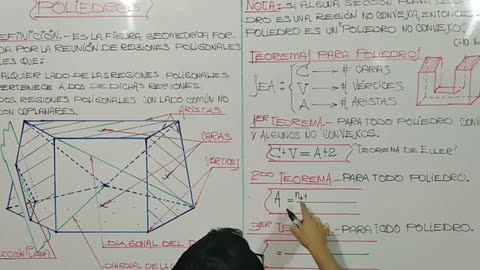 POLIEDROS
DEFINICIÓN.- ES LA FIGURA GEOMÉTRICA FOR
DA POR LA REUNIÓN DE REGIONES POLIGONALES
LES QUE:
ALQUIER LADO DE LAS REGIONES POLIGONALES
ERTENECE A DOS DE DICHAS REGIONES.
DOS REGIONES POLIGONALES CON LADO COMÚN NO
ON COPLANARES.
ARISTAS
CARAS
VÉRTICES
PLANA
DIAGONAL DEL
DIAGONAL DE LA
NOTA: SI ALGUNA SECCIÓN PLANA DE
DRO ES UNA REGIÓN NO CONVEXA, ENTONCES
POLIEDRO ES UN "POLIEDRO NO CONVEXO".
TEOREMAS PARA POLIEDROS
SEA:
C → # CARAS
V → # VÉRTICES
A → # ARISTAS
1ER TEOREMA.- PARA TODO POLIEDRO CONV
Y ALGUNOS NO CONVEXOS.
C+V = A+2
"TEOREMA DE EULER"
2DO TEOREMA.- PARA TODO POLIEDRO.
A =
3ER TEOREMA.- PARA TODO POLIEDRO.
=